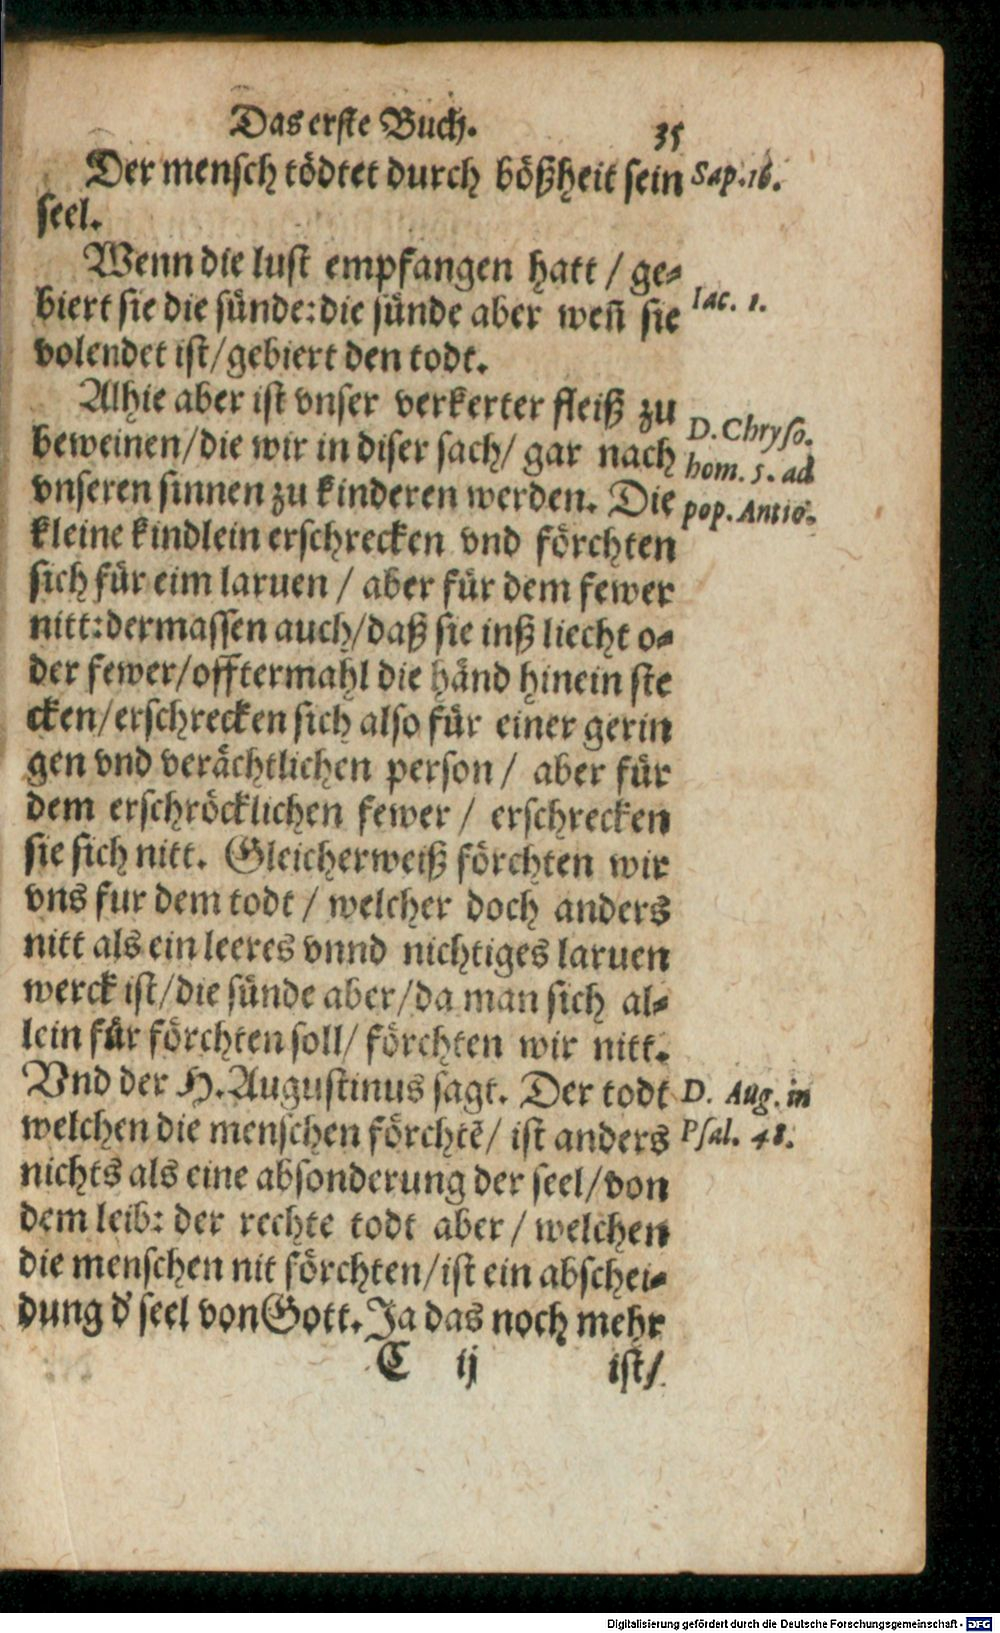 Das erste Buch. 35
Der mensch tödtet durch bößheit sein Sap. 16.
seel.
Wenn die lust empfangen hatt / ge-
biert sie die sünde: die sünde aber weñ sie Iac. 1.
volendet ist / gebiert den todt.
Alhie aber ist vnser verkerter fleiß zu
beweinen / die wir in diser sach / gar nach D. Chryso.
vnseren sinnen zu kinderen werden. Die hom. 5. ad
kleine kindlein erschrecken vnd förchten pop. Antio.
sich für eim laruen / aber für dem fewer
nitt: dermassen auch / daß sie inß liecht o-
der fewer / offtermahl die händ hinein ste
cken / erschrecken sich also für einer gerin
gen vnd verächtlichen person / aber für
dem erschröcklichen fewer / erschrecken
sie sich nitt. Gleicherweiß förchten wir
vns fur dem todt / welcher doch anders
nitt als ein leeres vnnd nichtiges laruen
werck ist / die sünde aber / da man sich al-
lein für förchten soll / förchten wir nitt.
Vnd der H. Augustinus sagt. Der todt D. Aug. in
welchen die menschen förchtẽ / ist anders Psal. 48.
nichts als eine absonderung der seel / von
dem leib: der rechte todt aber / welchen
die menschen nit förchten / ist ein abschei-
dung d' seel von Gott. Ja das noch mehr
C ij ist /
Digitalisierung gefördert durch die Deutsche Forschungsgemeinschaft - DFG